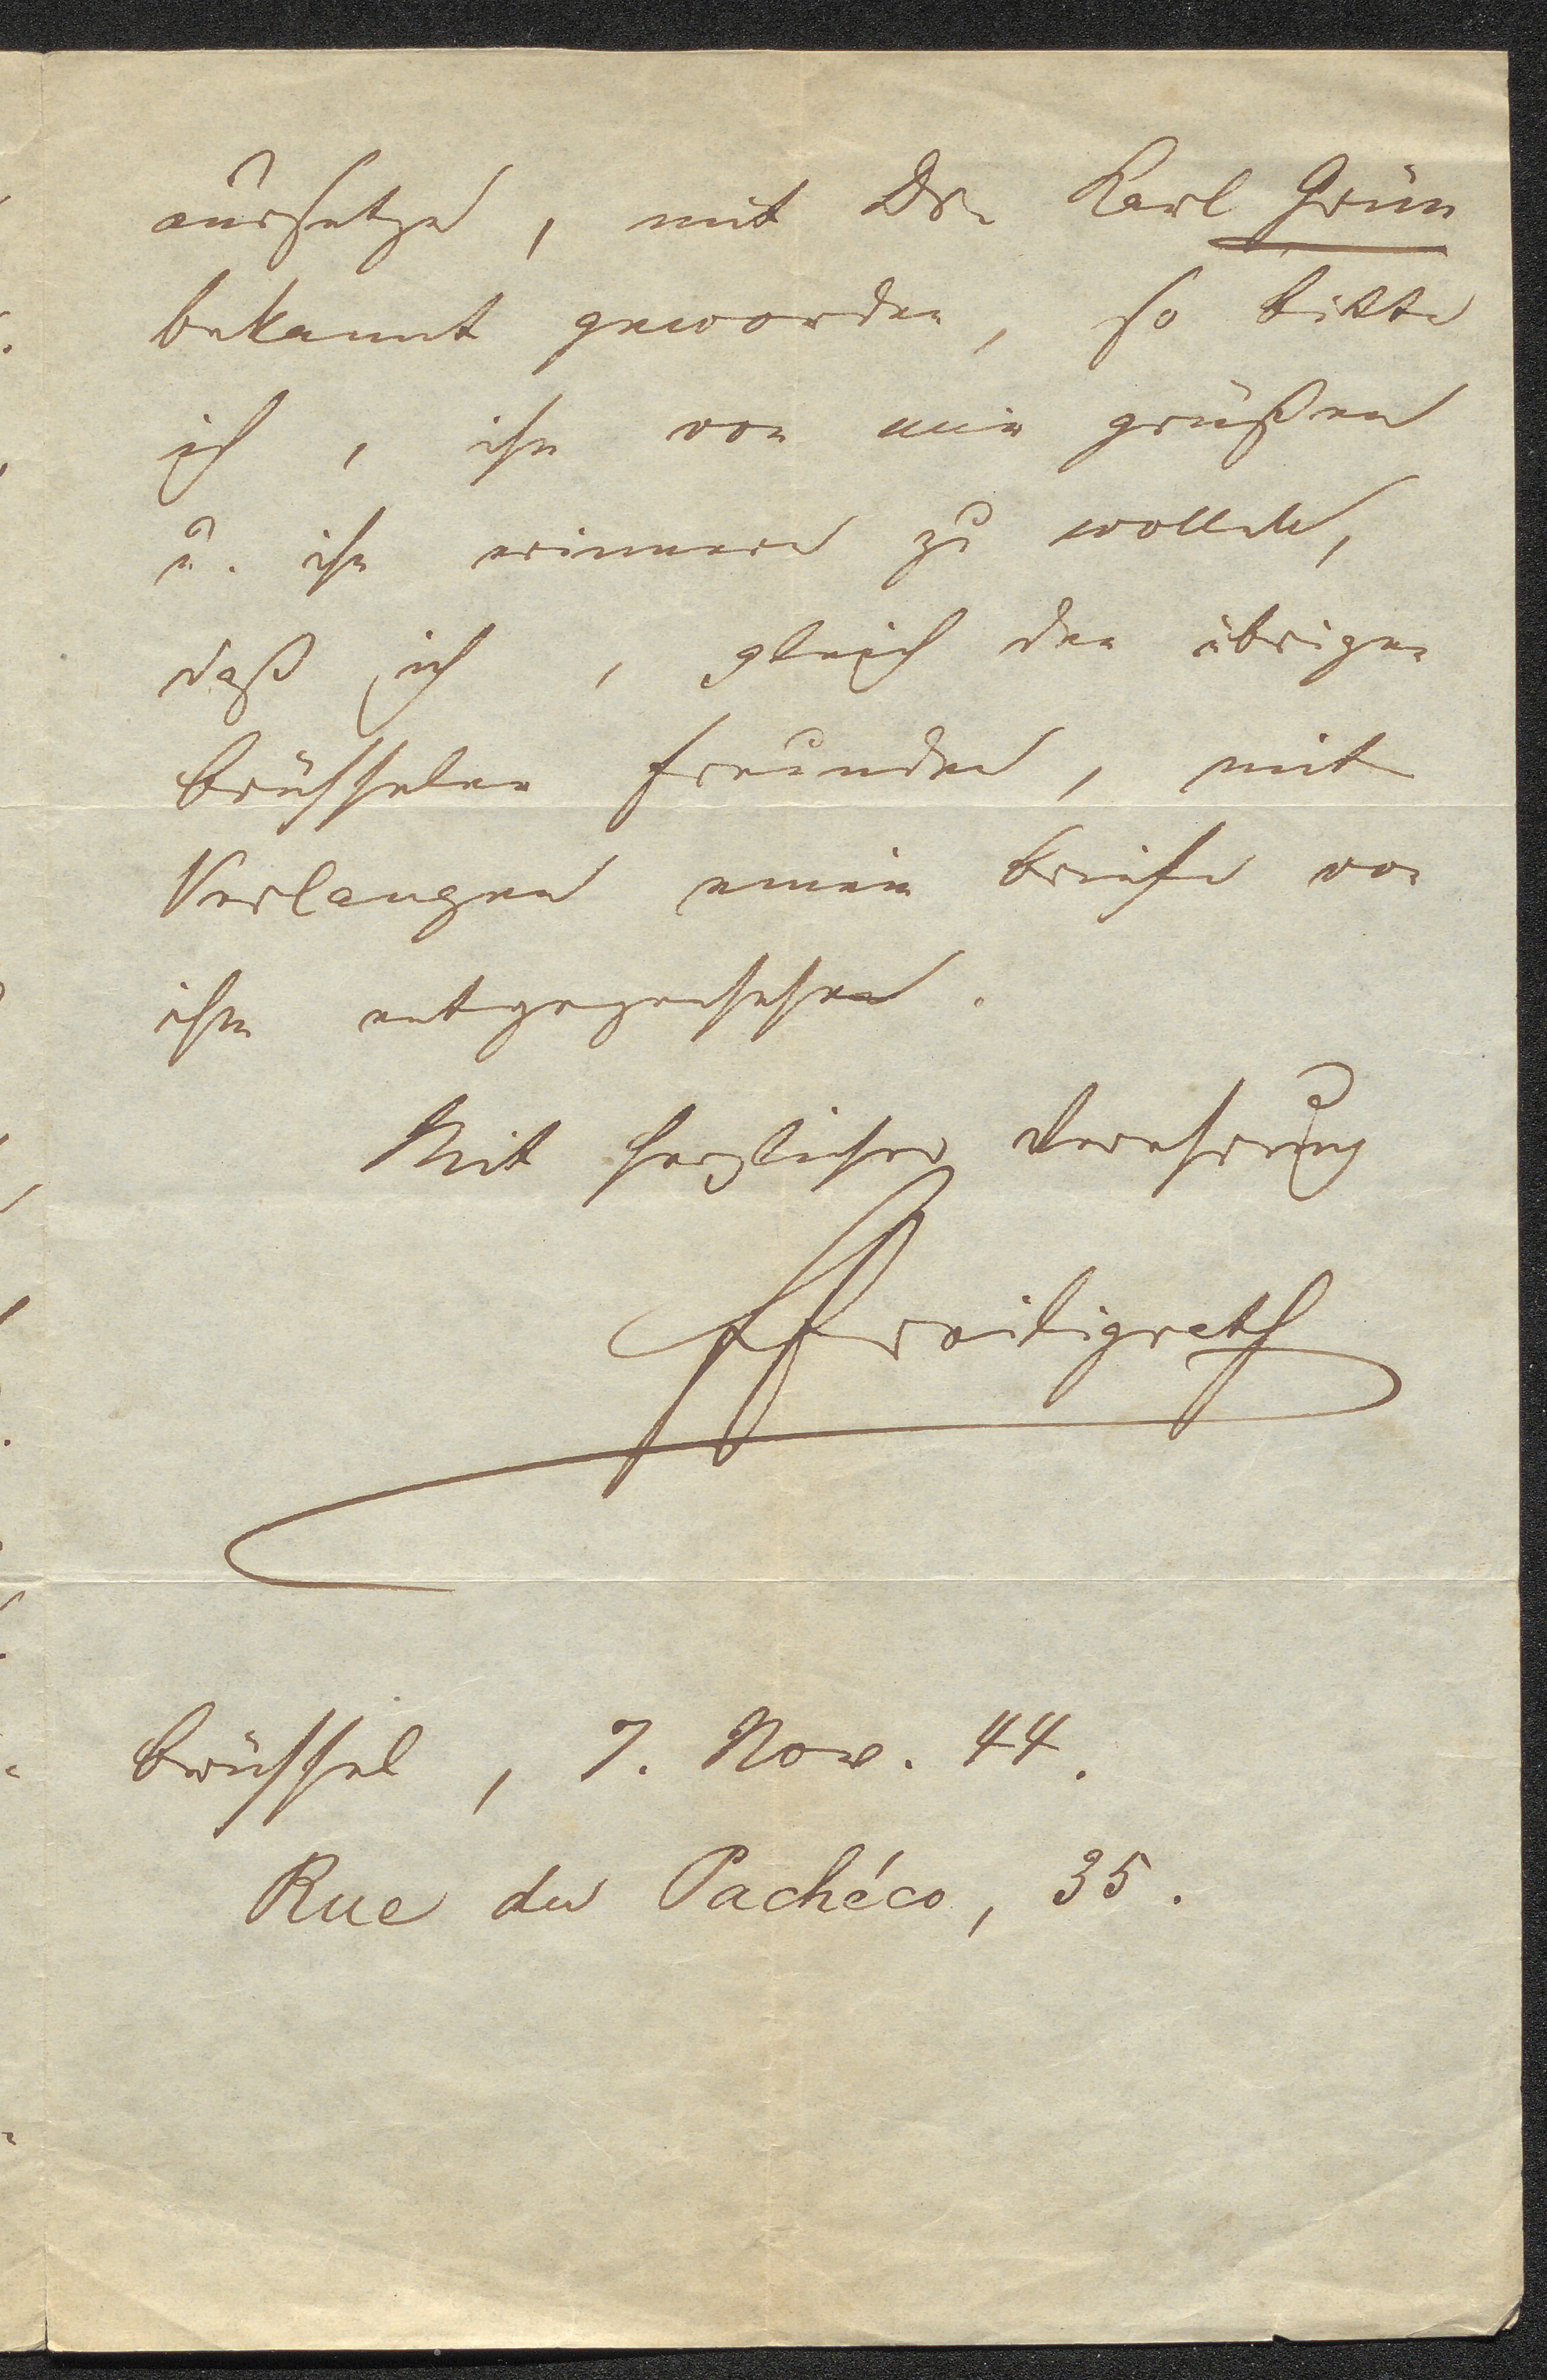 aussetze, mit Dr. Karl Grün
bekannt geworden, so bitte
ich, ihn von mir grüßen
u. ihn erinnern zu wollen,
daß ich, gleich den übrigen
Brüsseler Freunden, mit
Verlangen einem Briefe von
ihm entgegensehen.
Mit herzlicher Verehrung
FFreiligrath
Brüssel, 7. Nov. 44.
Rue de Pachéco, 35.